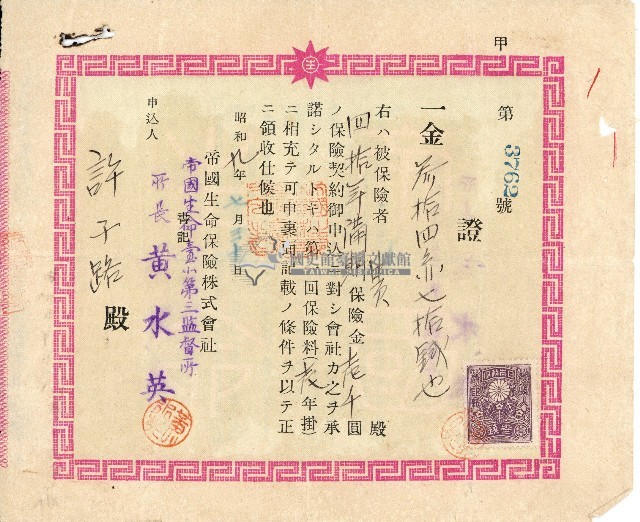 甲
第 3762 號
證
一金 叁拾四 七拾 也
右ハ被保險者 殿
四拾年滿期 保險金壱千圓
ノ保險契約御申込ニ對シ會社カ之ヲ承
諾シタルトキハ第一回保險料(壱年掛)
ニ相充テ可申裏面記載ノ條件ヲ以テ正
ニ領收仕候也
昭和九年七月 日
帝國生命保險株式會社
帝國生命臺北第三監督所
所長 黄水英
申込人
許子路 殿
國史館臺灣文獻館
TAIWAN HISTORICA